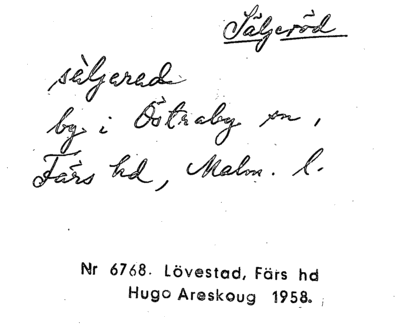 Säljeröd
säljerad
by i Östraby sn,
Färs hd, Malm. l.
Nr 6768. Lövestad, Färs hd
Hugo Areskoug 1958.